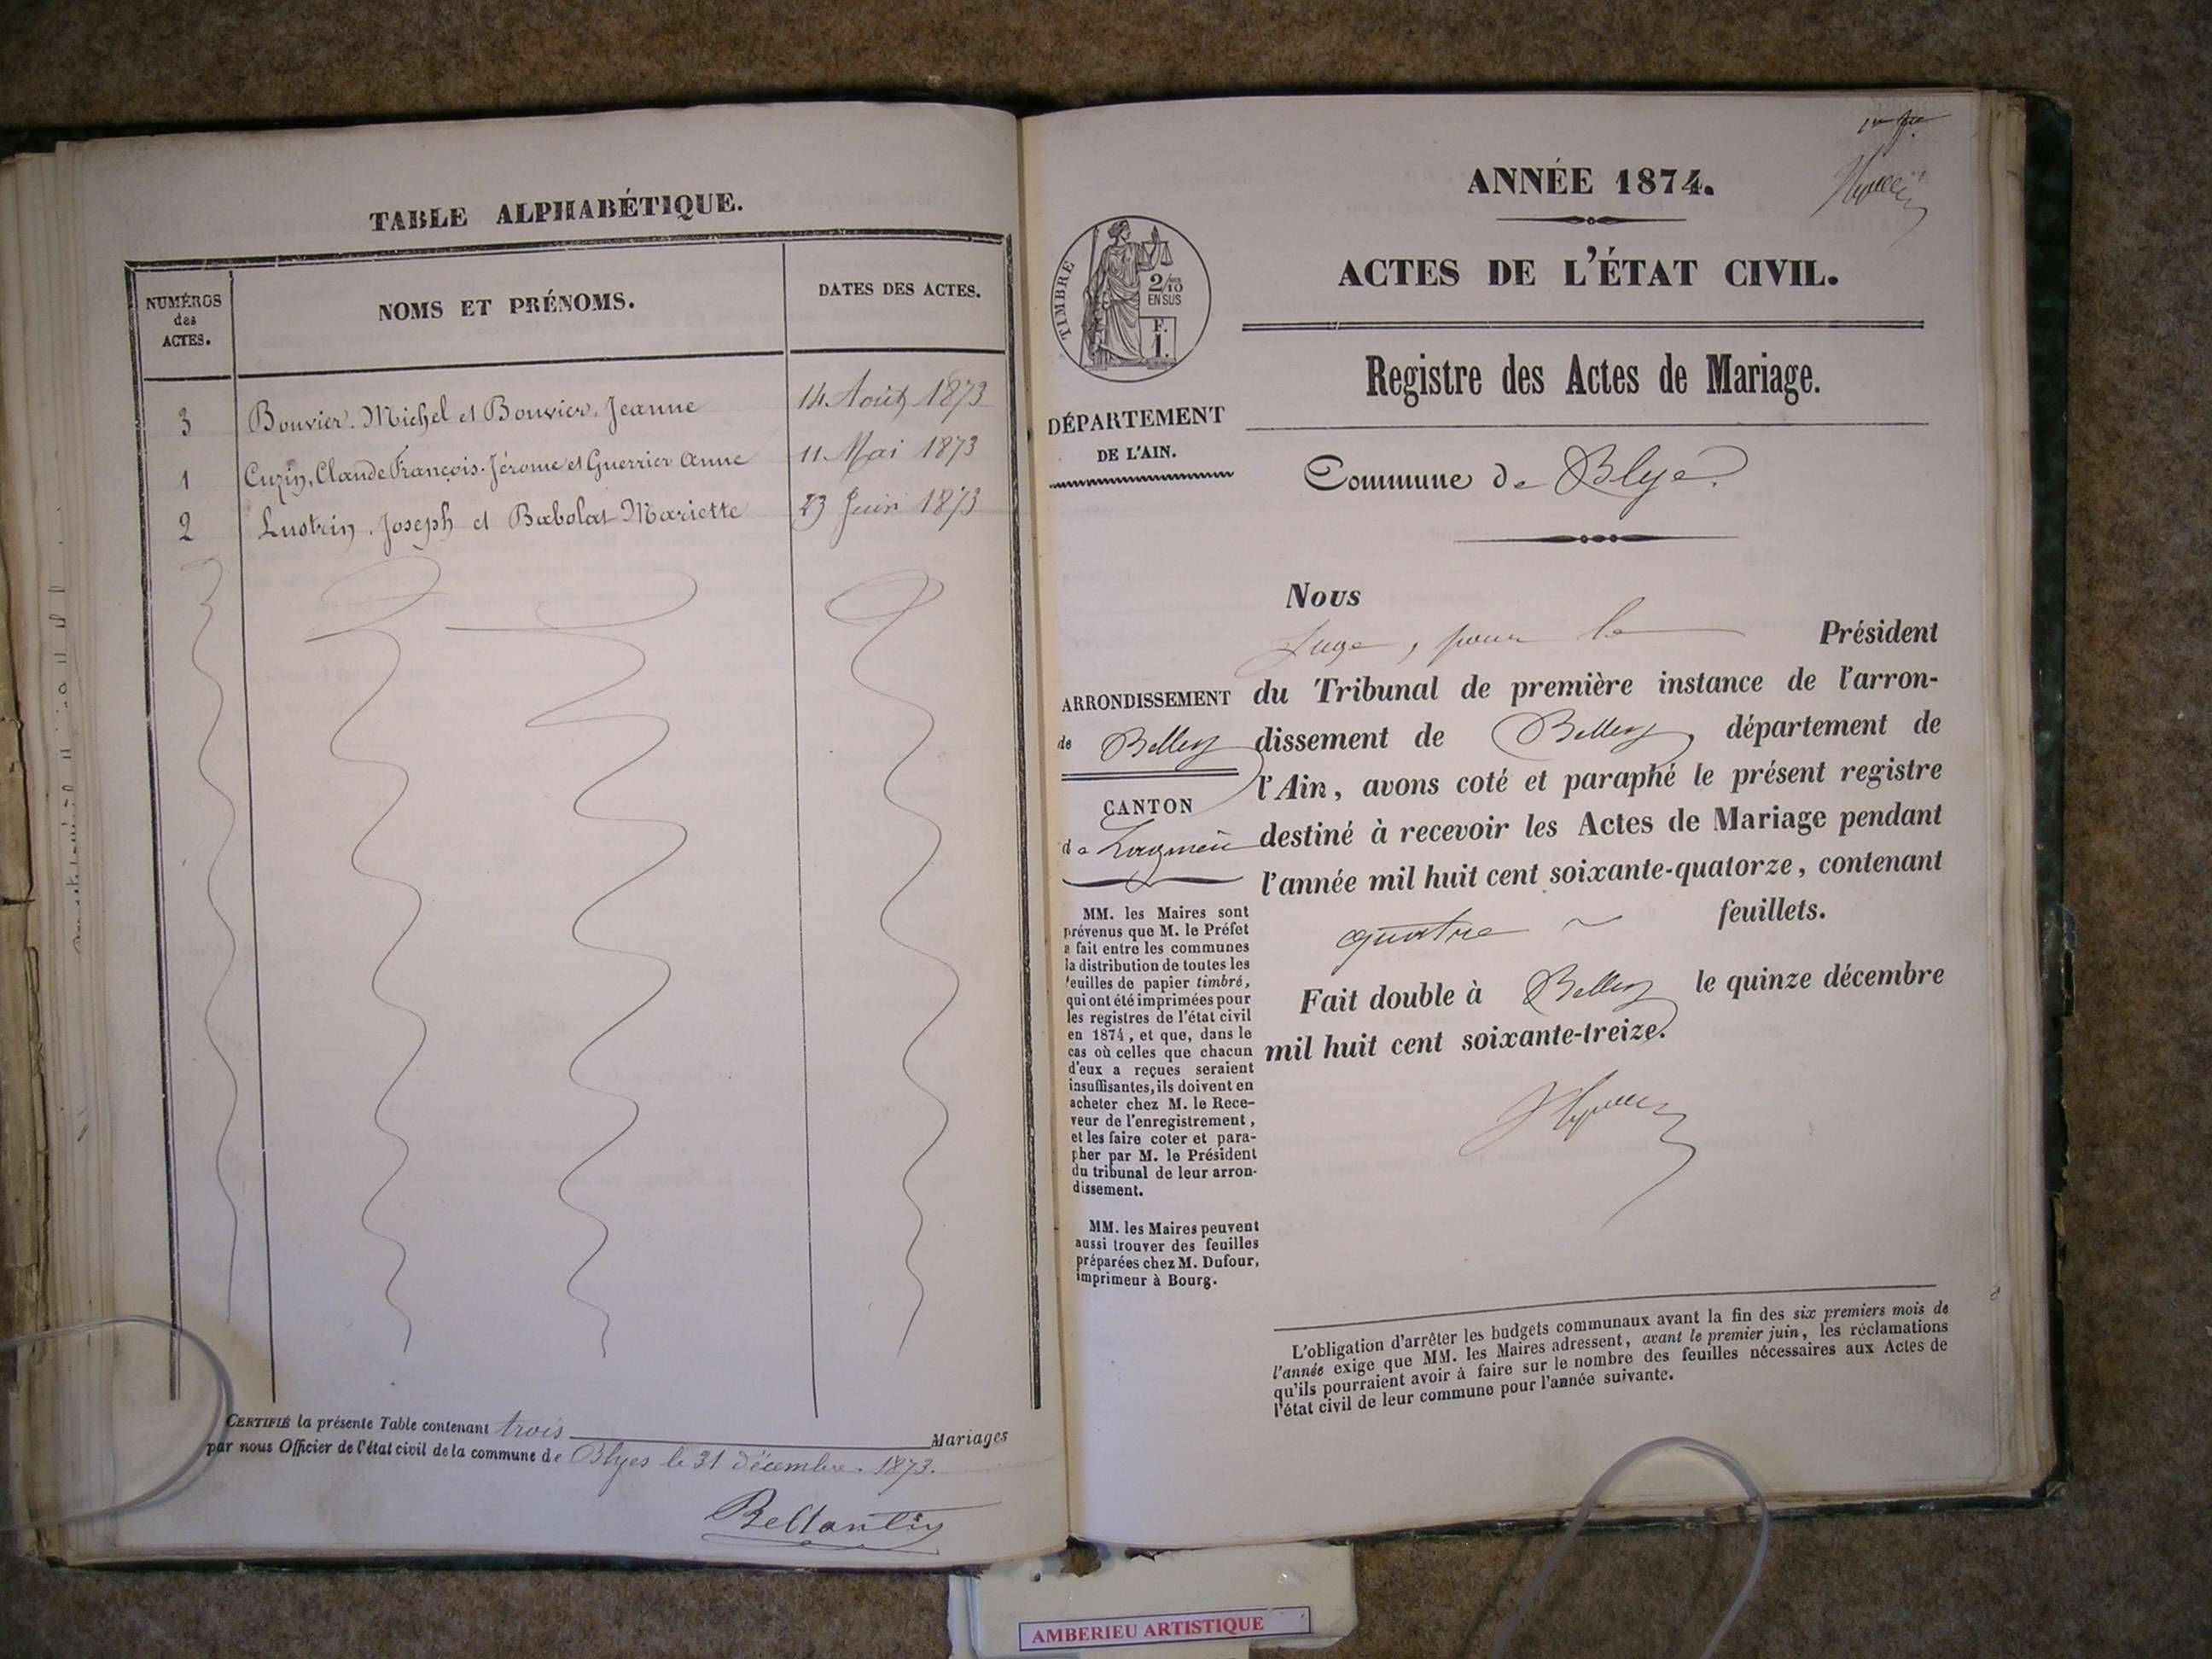 TABLE ALPHABÉTIQUE.
NUMÉROS
des
ACTES.
NOMS ET PRÉNOMS.
DATES DES ACTES.
3 Bouvier. Michel et Bouvier. Jeanne 14 Août 1873
1 Cuzin, Claude François-Jérome et Guerrier Anne 11 Mai 1873
2 Lustrin. Joseph et Babolat Mariette 23 Juin 1873
CERTIFIÉ la présente Table contenant trois Mariages
par nous Officier de l'état civil de la commune de Blyes le 31 décembre. 1873.
Bellantin
ANNÉE 1874.
ACTES DE L'ÉTAT CIVIL.
TIMBRE
2/10
EN SUS
F.
1.
Registre des Actes de Mariage.
DÉPARTEMENT
DE L'AIN.
Commune de Blyes
Nous
Juge, pour le Président
du Tribunal de première instance de l'arron-
dissement de Belley, département de
l'Ain, avons coté et paraphé le présent registre
destiné à recevoir les Actes de Mariage pendant
l'année mil huit cent soixante-quatorze, contenant
quatre feuillets.
Fait double à Belley le quinze décembre
mil huit cent soixante-treize.
ARRONDISSEMENT
de Belley
CANTON
de Lagnieu
MM. les Maires sont
prévenus que M. le Préfet
a fait entre les communes
la distribution de toutes les
feuilles de papier timbré,
qui ont été imprimées pour
les registres de l'état civil
en 1874, et que, dans le
cas où celles que chacun
d'eux a reçues seraient
insuffisantes, ils doivent en
acheter chez M. le Rece-
veur de l'enregistrement,
et les faire coter et para-
pher par M. le Président
du tribunal de leur arron-
dissement.
MM. les Maires peuvent
aussi trouver des feuilles
préparées chez M. Dufour,
imprimeur à Bourg.
L'obligation d'arrêter les budgets communaux avant la fin des six premiers mois de
l'année exige que MM. les Maires adressent, avant le premier juin, les réclamations
qu'ils pourraient avoir à faire sur le nombre des feuilles nécessaires aux Actes de
l'état civil de leur commune pour l'année suivante.
AMBERIEU ARTISTIQUE